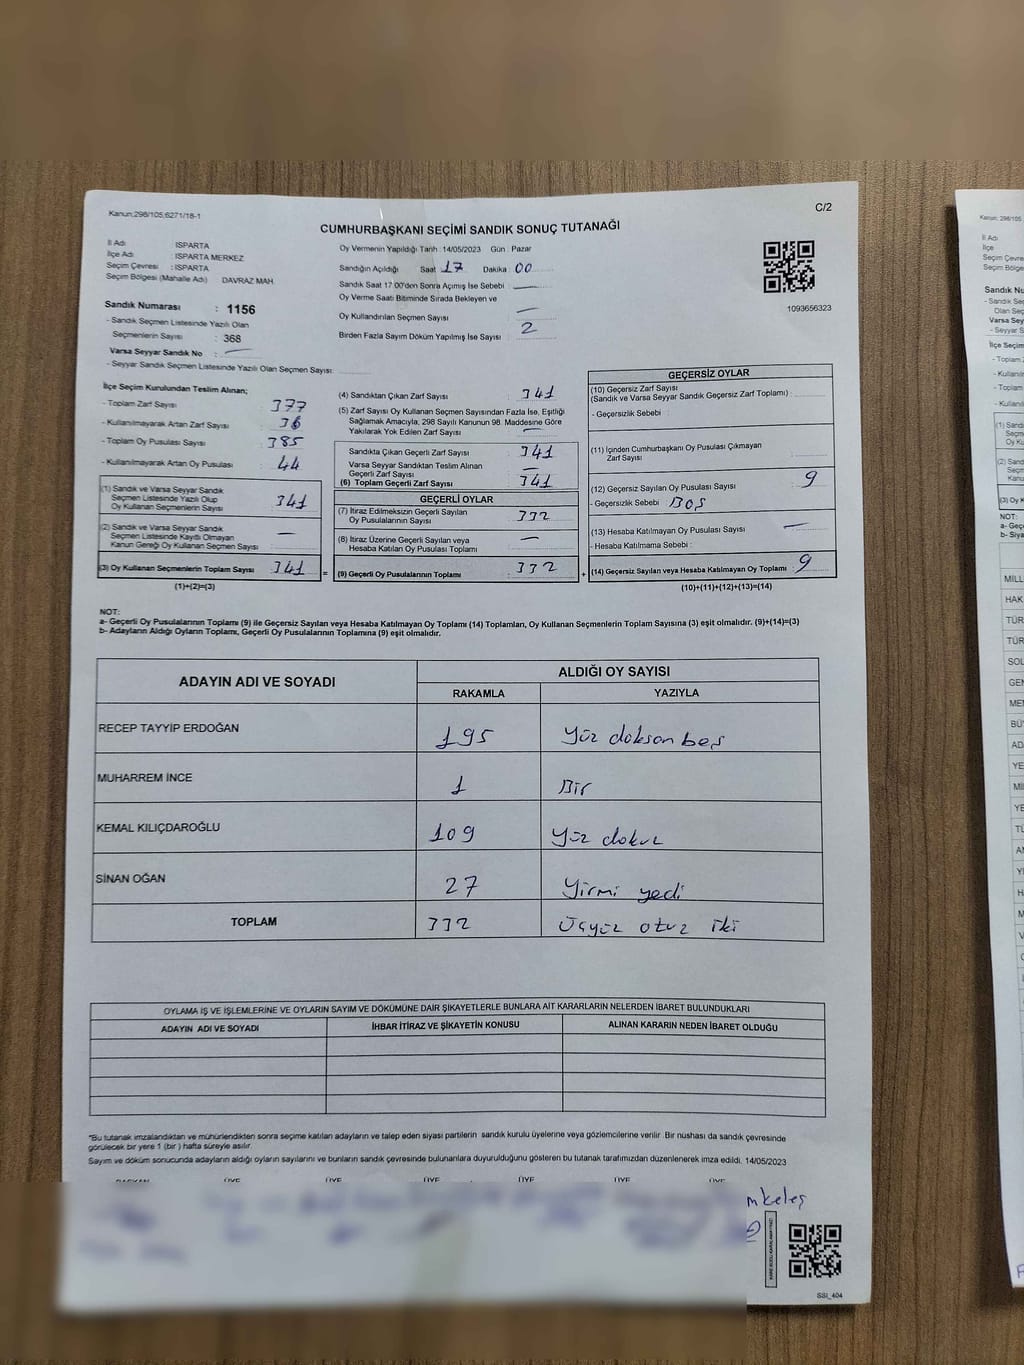 Kanun;298/105;6271/18-1
C/2
CUMHURBAŞKANI SEÇİMİ SANDIK SONUÇ TUTANAĞI
İl Adı : ISPARTA
İlçe Adı : ISPARTA MERKEZ
Seçim Çevresi : ISPARTA
Seçim Bölgesi (Mahalle Adı) DAVRAZ MAH.
Sandık Numarası : 1156
- Sandık Seçmen Listesinde Yazılı Olan
Seçmenlerin Sayısı : 368
Varsa Seyyar Sandık No :
- Seyyar Sandık Seçmen Listesinde Yazılı Olan Seçmen Sayısı:
Oy Vermenin Yapıldığı Tarih : 14/05/2023 Gün : Pazar
Sandığın Açıldığı Saat 17 Dakika 00
Sandık Saat 17.00'den Sonra Açımış İse Sebebi :
Oy Verme Saati Bitiminde Sırada Bekleyen ve
Oy Kullandırılan Seçmen Sayısı
Birden Fazla Sayım Döküm Yapılmış İse Sayısı : 2
1093656323
İlçe Seçim Kurulundan Teslim Alınan;
- Toplam Zarf Sayısı : 377
- Kullanılmayarak Artan Zarf Sayısı : 36
- Toplam Oy Pusulası Sayısı : 385
- Kullanılmayarak Artan Oy Pusulası : 44
(1) Sandık ve Varsa Seyyar Sandık
Seçmen Listesinde Yazılı Olup
Oy Kullanan Seçmenlerin Sayısı : 341
(2) Sandık ve Varsa Seyyar Sandık
Seçmen Listesinde Kaydı Olmayan
Kanun Gereği Oy Kullanan Seçmen Sayısı :
(3) Oy Kullanan Seçmenlerin Toplam Sayısı : 341 =
(1)+(2)=(3)
(4) Sandıktan Çıkan Zarf Sayısı : 341
(5) Zarf Sayısı Oy Kullanan Seçmen Sayısından Fazla İse, Eşitliği
Sağlamak Amacıyla, 298 Sayılı Kanunun 98. Maddesine Göre
Yakılarak Yok Edilen Zarf Sayısı :
Sandıkta Çıkan Geçerli Zarf Sayısı : 341
Varsa Seyyar Sandıktan Teslim Alınan
Geçerli Zarf Sayısı
(6) Toplam Geçerli Zarf Sayısı : 341
GEÇERLİ OYLAR
(7) İtiraz Edilmeksizin Geçerli Sayılan
Oy Pusulalarının Sayısı : 332
(8) İtiraz Üzerine Geçerli Sayılan veya
Hesaba Katılan Oy Pusulası Toplamı :
(9) Geçerli Oy Pusulalarının Toplamı : 332 +
GEÇERSİZ OYLAR
(10) Geçersiz Zarf Sayısı
(Sandık ve Varsa Seyyar Sandık Geçersiz Zarf Toplamı) :
- Geçersizlik Sebebi :
(11) İçinden Cumhurbaşkanı Oy Pusulası Çıkmayan
Zarf Sayısı
(12) Geçersiz Sayılan Oy Pusulası Sayısı : 9
- Geçersizlik Sebebi : BOŞ
(13) Hesaba Katılmayan Oy Pusulası Sayısı :
- Hesaba Katılmama Sebebi :
(14) Geçersiz Sayılan veya Hesaba Katılmayan Oy Toplamı : 9
(10)+(11)+(12)+(13)=(14)
NOT:
a- Geçerli Oy Pusulalarının Toplamı (9) ile Geçersiz Sayılan veya Hesaba Katılmayan Oy Toplamı (14) Toplamları, Oy Kullanan Seçmenlerin Toplam Sayısına (3) eşit olmalıdır. (9)+(14)=(3)
b- Adayların Aldığı Oyların Toplamı, Geçerli Oy Pusulalarının Toplamına (9) eşit olmalıdır.
ADAYIN ADI VE SOYADI
ALDIĞI OY SAYISI
RAKAMLA YAZIYLA
RECEP TAYYİP ERDOĞAN 195 Yüz doksan beş
MUHARREM İNCE 1 Bir
KEMAL KILIÇDAROĞLU 109 Yüz dokuz
SİNAN OĞAN 27 Yirmi yedi
TOPLAM 332 Üçyüz otuz iki
OYLAMA İŞ VE İŞLEMLERİNE VE OYLARIN SAYIM VE DÖKÜMÜNE DAİR ŞİKAYETLERLE BUNLARA AİT KARARLARIN NELERDEN İBARET BULUNDUKLARI
ADAYIN ADI VE SOYADI İHBAR İTİRAZ VE ŞİKAYETİN KONUSU ALINAN KARARIN NEDEN İBARET OLDUĞU
*Bu tutanak imzalandıktan ve mühürlendikten sonra seçime katılan adayların ve talep eden siyasi partilerin sandık kurulu üyelerine veya gözlemcilerine verilir. Bir nüshası da sandık çevresinde
görülecek bir yere 1 (bir) hafta süreyle asılır.
Sayım ve döküm sonucunda adayların aldığı oyların sayılarını ve bunların sandık çevresinde bulunanlara duyurulduğunu gösteren bu tutanak tarafımızdan düzenlenerek imza edildi. 14/05/2023
BAŞKAN ÜYE ÜYE ÜYE ÜYE ÜYE ÜYE
mkeleş
SSI_404
Kanun; 298/105
İl Adı
İlçe
Seçim Çevre
Seçim Bölge
Sandık Nu